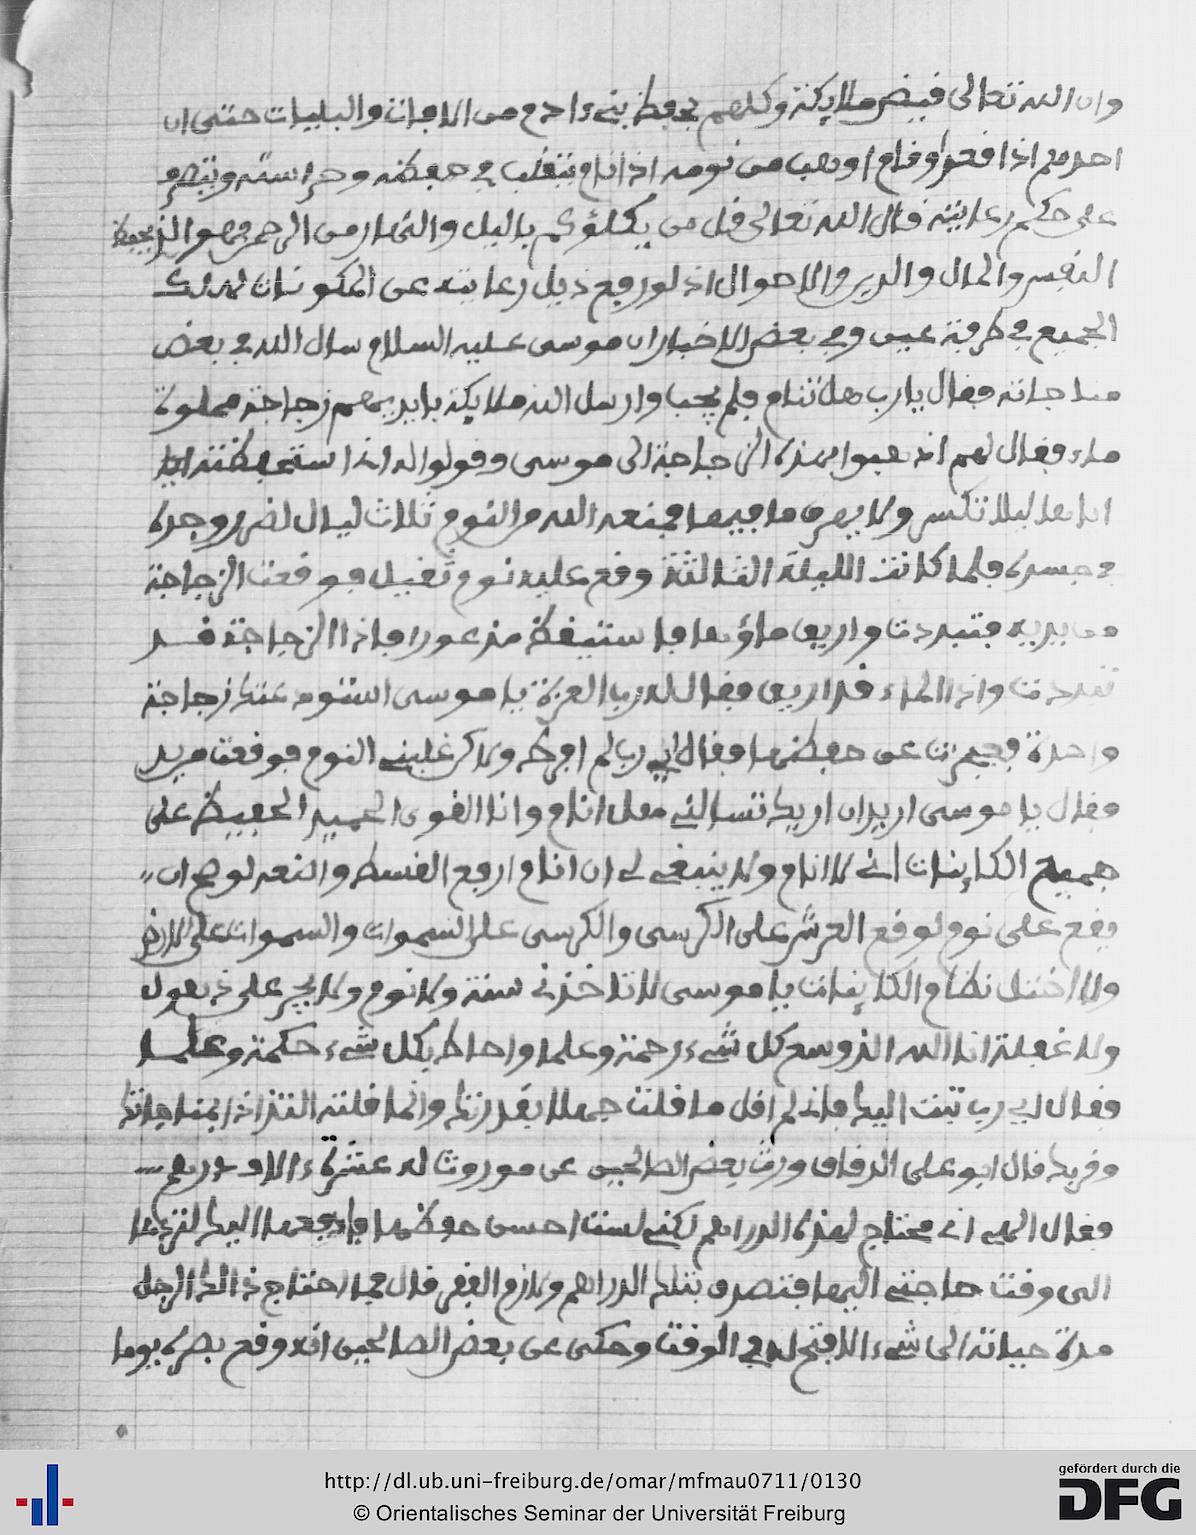 وان الله تعالى قيض ملايكة وكلهم بحفظ بني ءادم من الافات والبليات حتى ان
احدهم اذا قعد او قام او هب من نومه اذا نام يتقلب في حفظه وحراسته
على حكم رعايته قال الله تعالى قل من يكلؤكم باليل والنهار من الرحمن فهو الذي يحفظ
النفس والمال والدين والاحوال اذ لو رفع ذيل رعايته عن المكونات لهلك
الجميع في طرفة عين وفي بعض الاخبار ان موسى عليه السلام سال الله في بعض
مناجاته فقال يارب هل تنام فلم يجب وارسل الله ملايكة بايديهم زجاجة مملوة
ماء فقال لهم اذهبوا بهذه الزجاجة الى موسى وقولوا له اذا استحفظته
اياها ليلا تنكسر ولا يهرق ما فيها فمنعه الله من النوم ثلاث ليال لضر وجده
في جسده فلما كانت الليلة الثالثة وقع عليه نوم ثقيل فوقعت الزجاجة
من يديه فتبددت واريق ماؤها فاستيقظ مذعورا فاذا الزجاجة قد
تبددت واذا الماء قد اريق فقال له رب العزة يا موسى استودعتك زجاجة
واحدة فعجزت عن حفظها فقال اي رب لم افرط ولاكن غلبني النوم فوقعت من يدي
وقال يا موسى اريد ان اريك تسالني هل انام وانا القوي الحميد الحفيظ على
جميع الكاينات اني لا انام ولا ينبغي لي ان انام ارفع القسط واضعه لو صح ان
يقع علي نوم لوقع العرش على الكرسي والكرسي على السموات والسموات على الارض
ولا اختل نظام الكاينات يا موسى لا تاخذني سنة ولا نوم ولا يجر علي ذهول
ولا غفلة انا الله الذي وسع كل شيء رحمة وعلما واحاط بكل شيء حكمة وعلما
فقال اي رب تبت اليك فاني لم اقل ما قلت جهلا بقدرتك وانما قلته التذاذا بمناجاتك
وقريه قال ابو علي الدقاق ورث بعض الصالحين عن موروث له عشرة ءالاف درهم
وقال الهي اني محتاج لهذه الدراهم لكني لست احسن حفظها فادفعها اليك لتردها
الي وقت حاجتي اليها فتصدق بتلك الدراهم ولازم الفقر قال فما احتاج ذالك الرجل
مدة حياته الى شيء الا فتح له في الوقت وحكي عن بعض الصالحين انه وقع بصره يوما
http://dl.ub.uni-freiburg.de/omar/mfmau0711/0130
© Orientalisches Seminar der Universität Freiburg
gefördert durch die
DFG